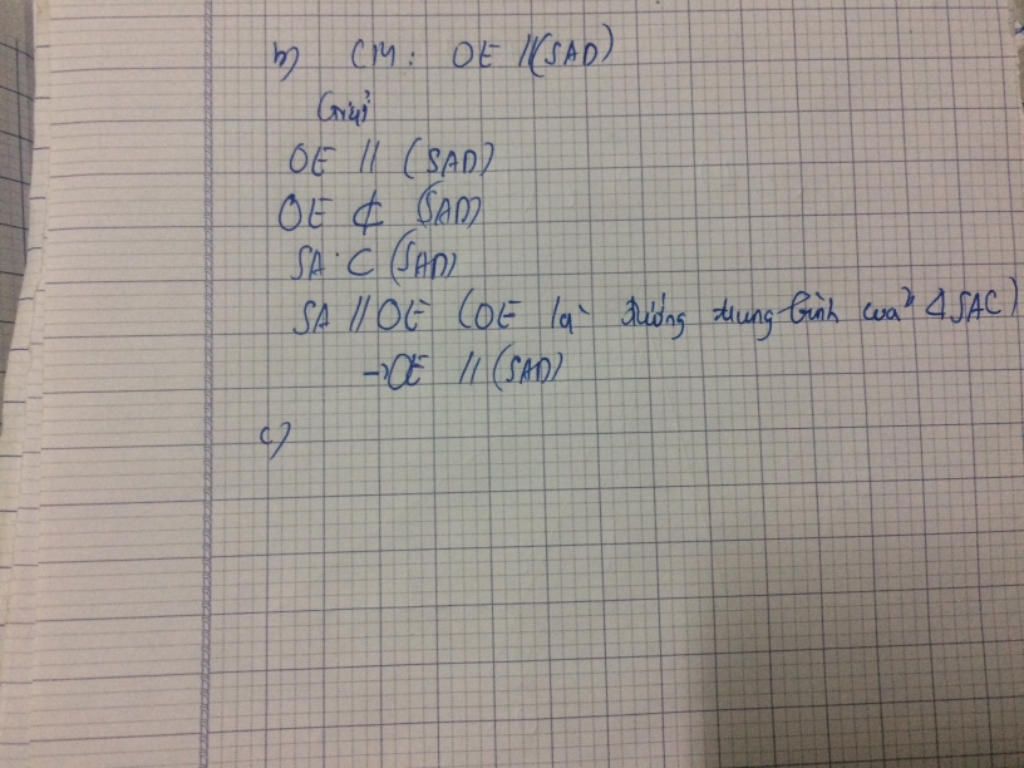 b) CM: OE // (SAD)
Giải
OE // (SAD)
OE ⊄ (SAD)
SA ⊂ (SAD)
SA // OE (OE là đường trung bình của Δ SAC)
→ OE // (SAD)
c)